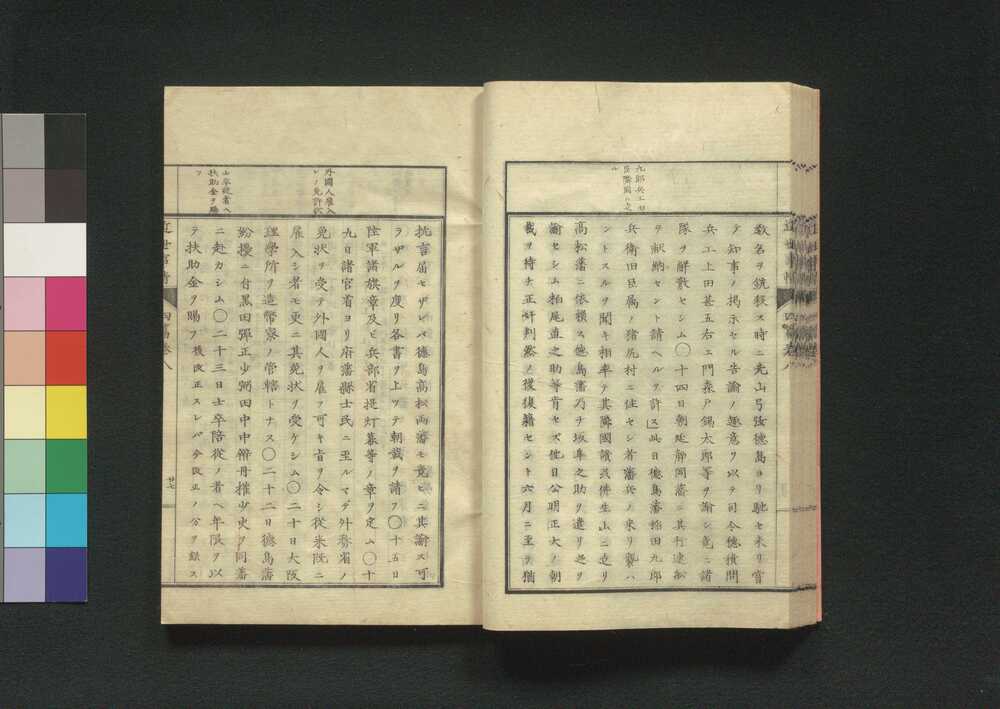 九郎兵エ四
国臣隣国ニ之
ル
数名ヲ銃殺ス時ニ光山弓弦徳島ヨリ馳セ来リ官
テ知事ノ掲示セル告諭ノ趣意ヲ以テ司令穂積門
兵エ上田甚五右エ門森戸錫太郎等ヲ諭シ竟ニ諸
隊ヲ解散セシム〇十四日朝廷静岡藩ニ其行速船
ヲ献納セント請ヘルヲ許ス此日徳島藩稲田九郎
兵衛田臣属ノ猪尻村ニ住セシ者藩兵ノ来リ襲ハ
ントスルヲ聞キ相率テ其隣国讃岐佛生山ニ走リ
高松藩ニ依頼ス徳島藩乃チ坂隼之助ヲ遣リ之ヲ
諭セシム柏尾直之助等肯セズ他日公明正大ノ朝
裁ヲ待チ正奸判然ノ後復籍セント六月ニ至ヲ猶
外国人雇入
レノ免許状
山卒従者ヘ
扶助金ヲ賜
フ
抗言居セザレバ徳島高松両藩モ竟ニ其諭ス可
ラザルヲ度リ各書ヲ上ツテ朝裁ヲ請フ〇十五日
陸軍諸旗章及ビ兵部省提灯幕等ノ章ヲ定ム〇十
九日諸官省ヨリ府藩県士民ニ至ルマテ外務省ノ
免状ヲ受テ外国人ヲ雇フ可キ旨ヲ令シ従来既ニ
雇入シ者モ更ニ其免状ヲ受ケシム〇二十日大阪
理学所ヲ造幣寮ノ管轄トナス〇二十二日徳島藩
紛擾ニ付黒田弾正少弼田中中弁丹権少史ヲ同藩
ニ赴カシム〇二十三日士卒陪従ノ者ヘ年限ヲ以
テ扶助金ヲ賜フ後改正スレバ今改正ノ分ヲ録ス
近世事情
四篇巻八
廿七